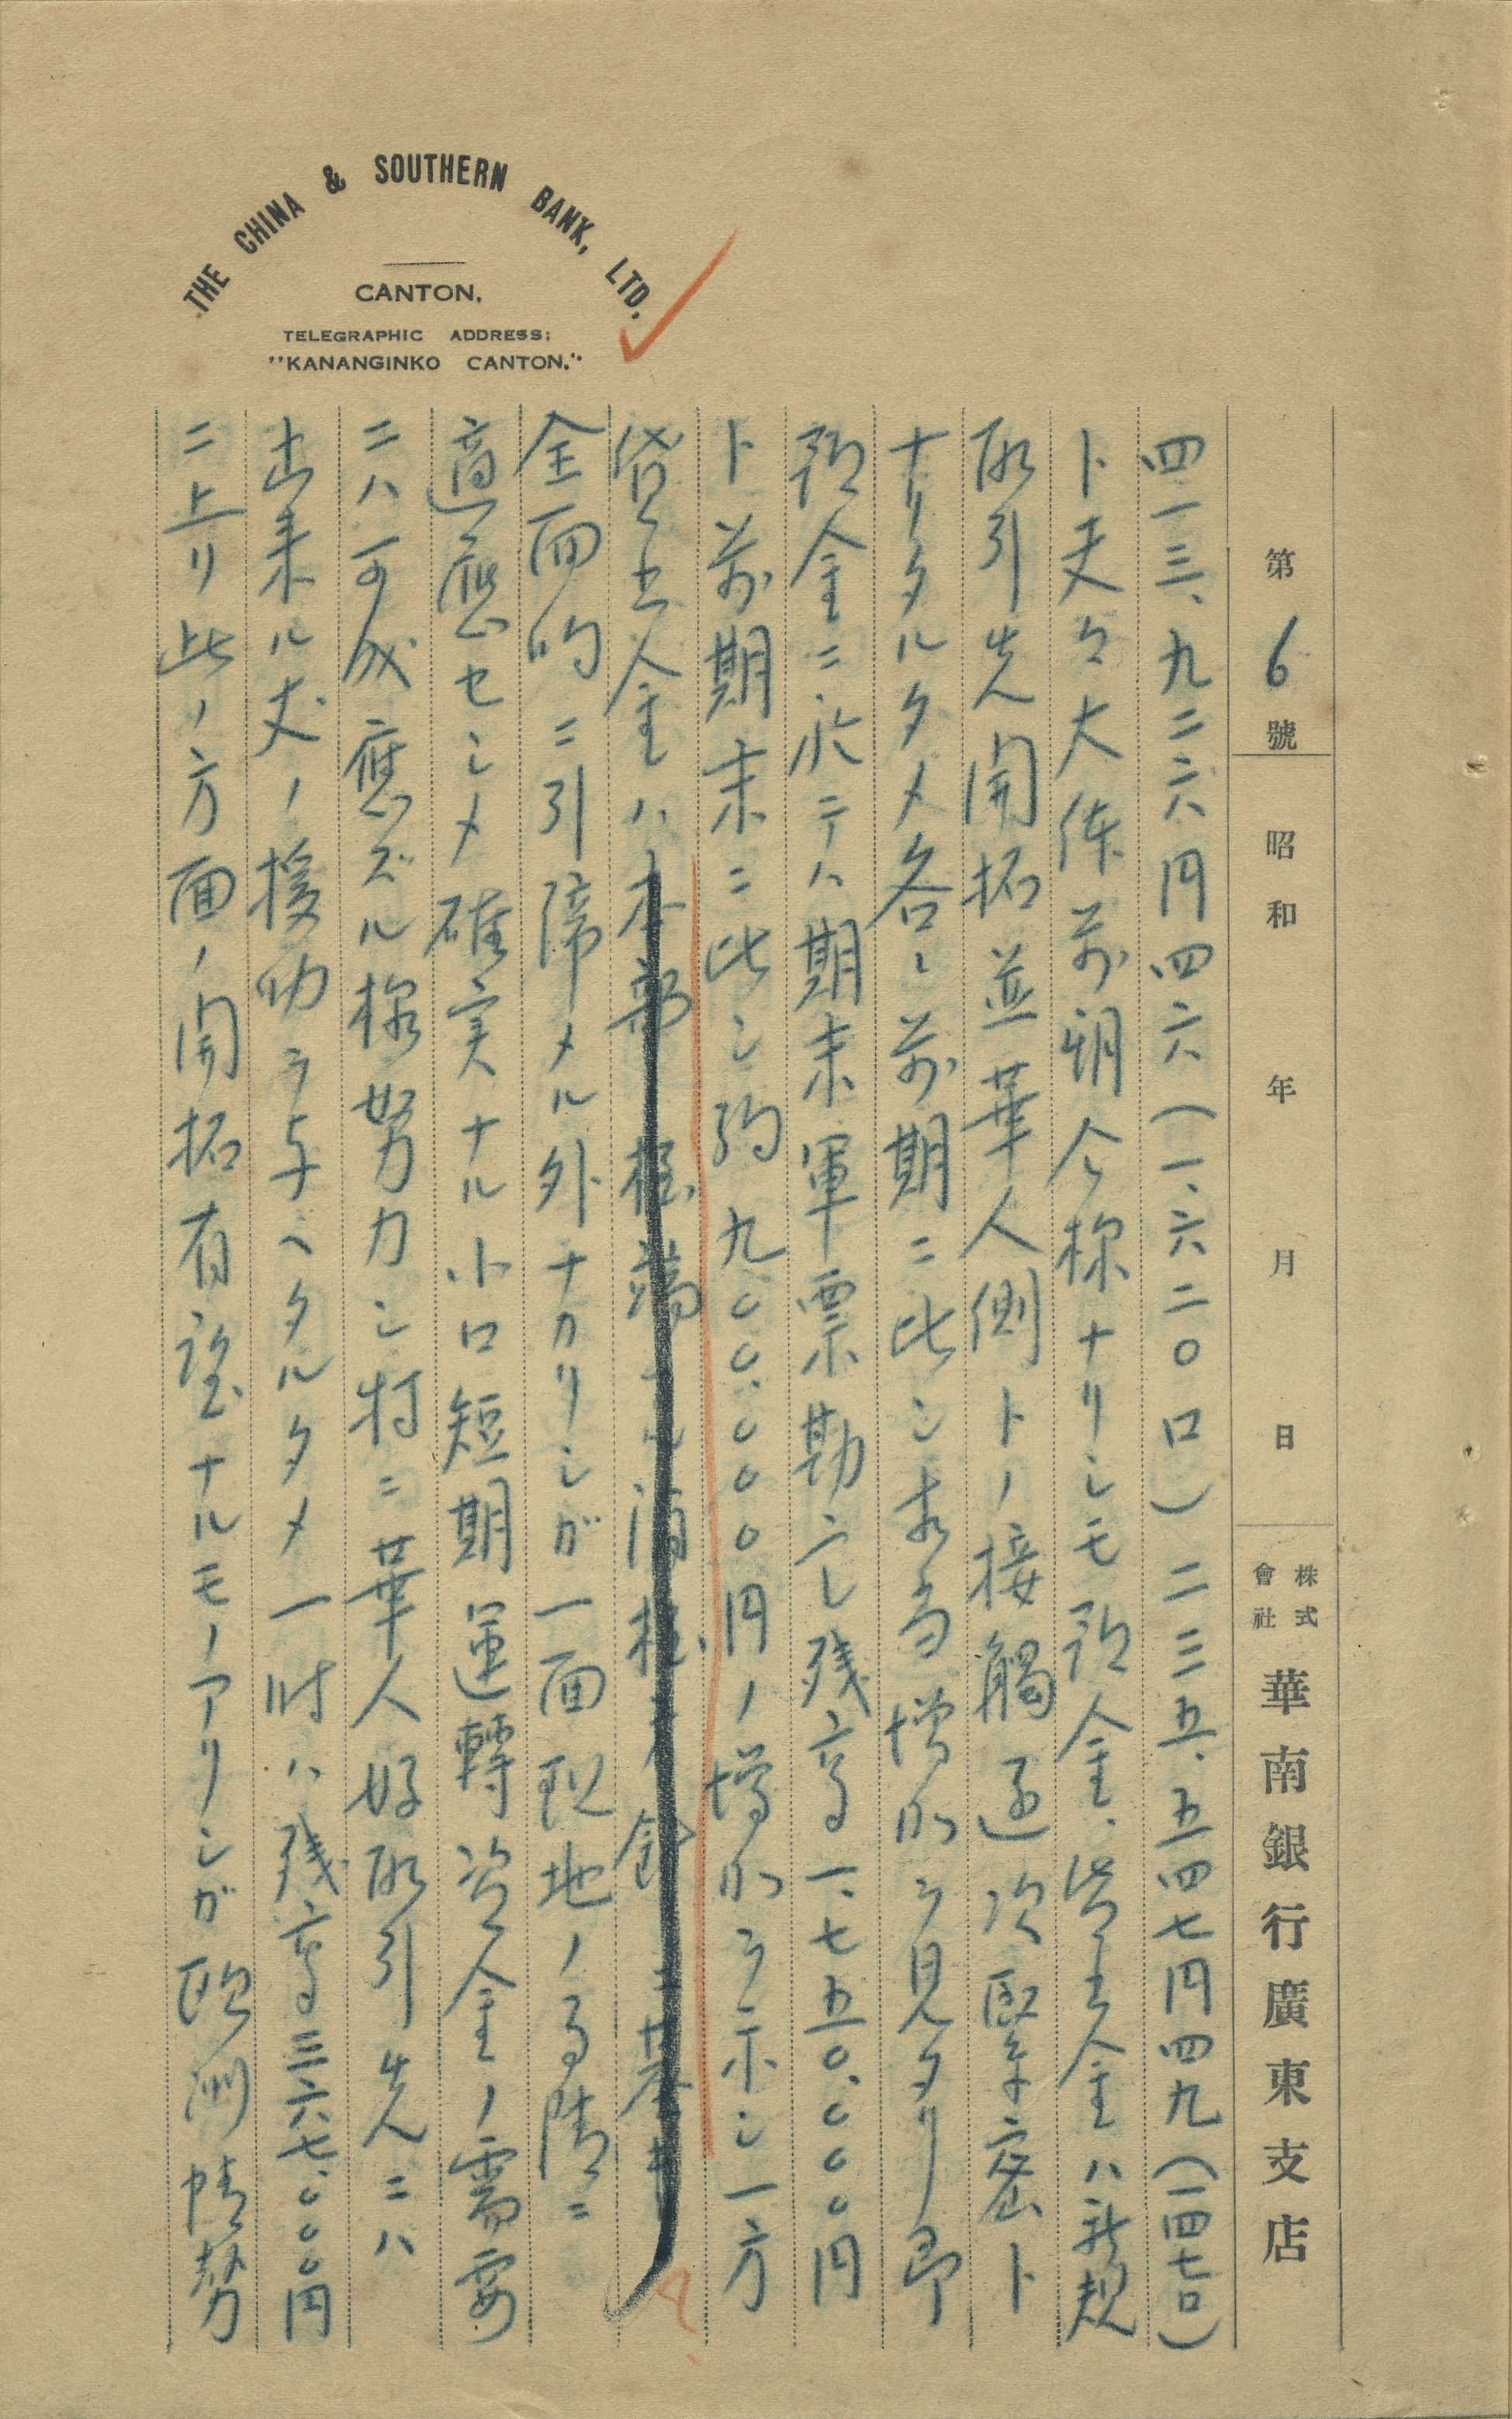 THE CHINA & SOUTHERN BANK, LTD.
CANTON.
TELEGRAPHIC ADDRESS:
"KANANGINKO CANTON."
第6號 昭和 年 月 日 株式會社 華南銀行廣東支店
四一三、九二六円四六(一、六二〇口)二三五、五四七円四九(一四七口)
ト夫々大体前期仝様ナリシモ預金、貸出金ハ新規
取引先開拓並華人側トノ接觸逐次緊密ト
ナリタルタメ各々前期ニ比シ相当増加ヲ見タリ即
預金ニ於テハ期末軍票勘定残高一、七五〇、〇〇〇円
ト前期末ニ比シ約九〇〇、〇〇〇円ノ増加ヲ示シ一方
貸出金ハ本部極端ナル消極方針ニ基キ
全面的ニ引締メル外ナカリシガ一面現地ノ事情ニ
適應セシメ確実ナル小口短期運轉資金ノ需要
ニハ可成應ズル様努力シ特ニ華人好取引先ニハ
出来ル丈ノ援助ヲ与ヘタルタメ一時ハ残高三六七、〇〇〇円
ニ上リ此ノ方面ノ開拓有望ナルモノアリシガ欧洲情勢